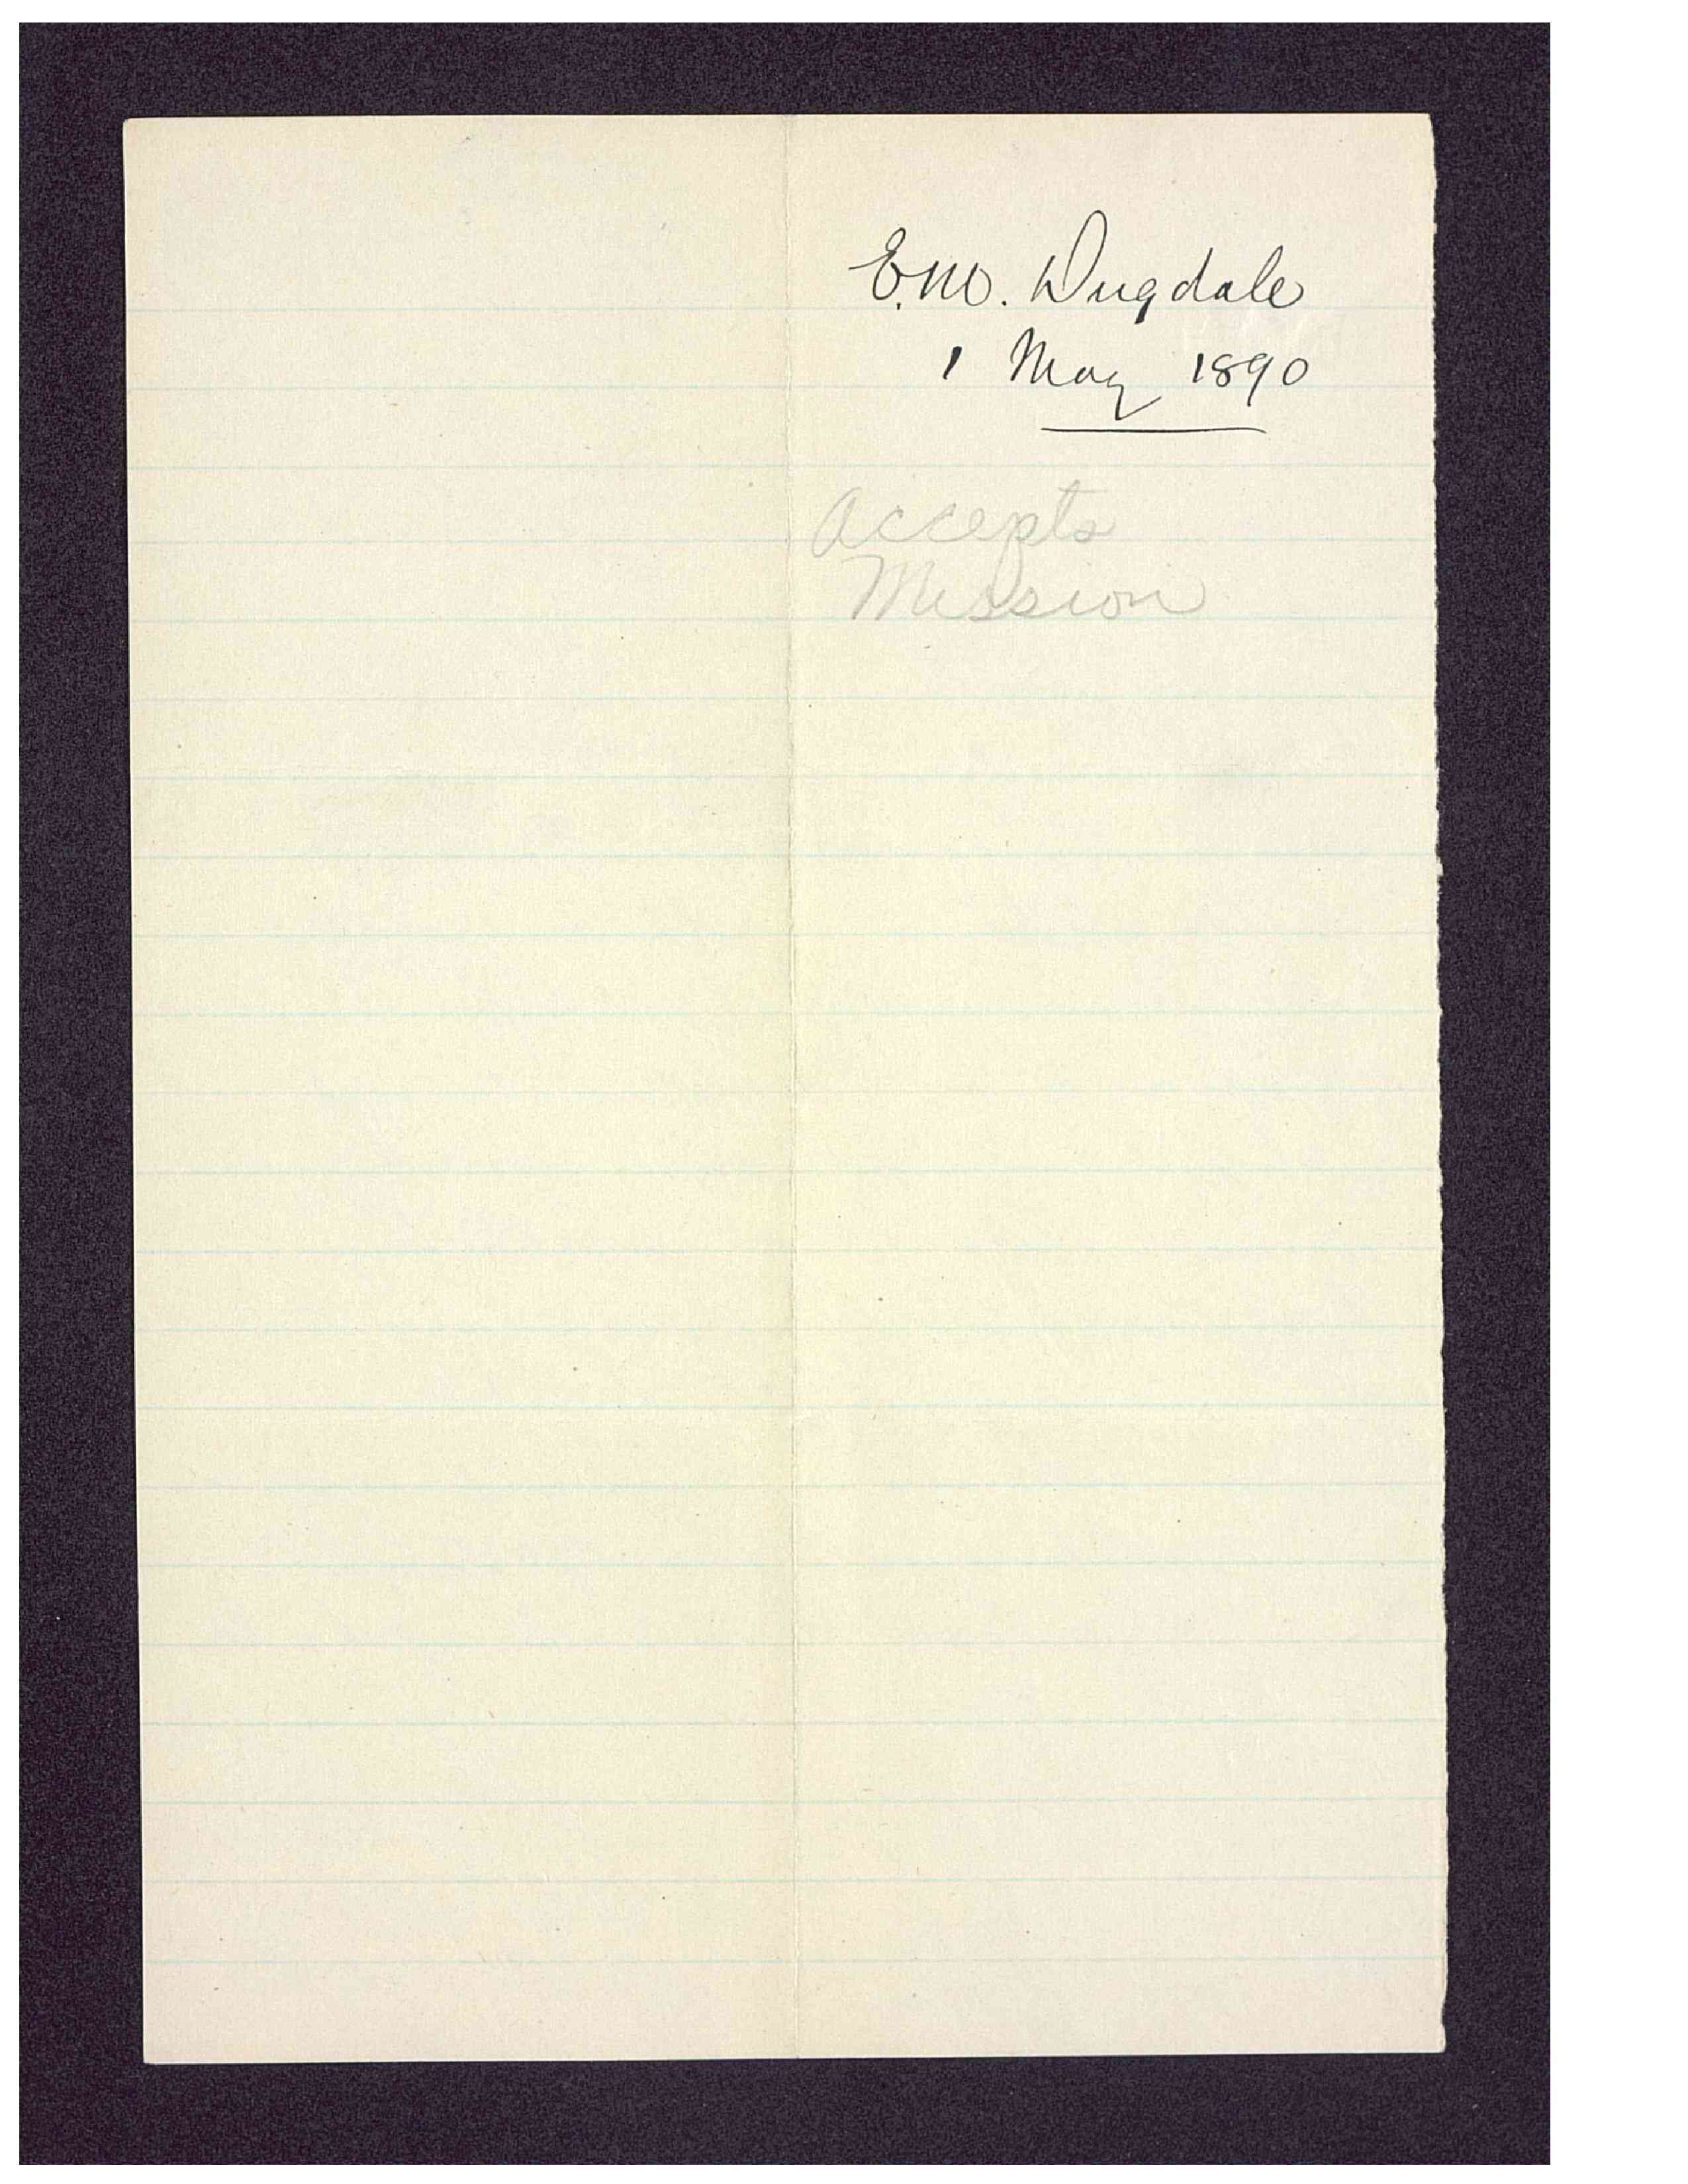 E.M. Dugdale
1 May 1890
Accepts
Mission